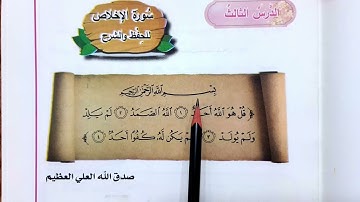 الدَّرْسُ الثَّالِثُ
سُورَةُ الإِخْلَاصِ
لِلْحِفْظِ وَالشَّرْحِ
بِسْمِ اللَّهِ الرَّحْمَٰنِ الرَّحِيمِ
﴿ قُلْ هُوَ اللَّهُ أَحَدٌ ١ اللَّهُ الصَّمَدُ ٢ لَمْ يَلِدْ
وَلَمْ يُولَدْ ٣ يَكُن لَّهُ كُفُوًا أَحَدٌ ٤ ﴾
صدق الله العلي العظيم